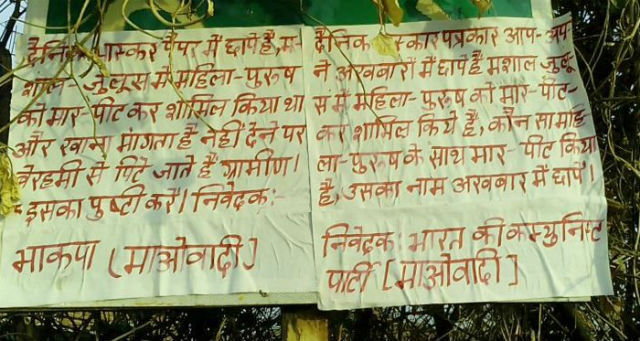 दैनिक भास्कर पेपर में छापे हैं, म-
शाल - जुलूस में महिला - पुरुष
को मार - पीट कर शामिल किया था
और खाना मांगता है नहीं देने पर
बेरहमी से पिटे जाते हैं ग्रामीण।
इसका पुष्टी करें। निवेदक:-
भाकपा (माओवादी)
दैनिक भास्कार पत्रकार आप-अप-
ने अखबारों में छापे हैं मशाल जुलू-
स में महिला - पुरुष को मार - पीट-
कर शामिल किये हैं, कौन सा महि-
ला - पुरुष के साथ मार - पीट किया
है, उसका नाम अखबार में छापें।
निवेदक: भारत की कम्युनिस्ट
पार्टी [माओवादी]